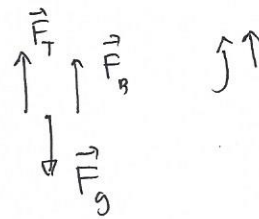 F⃗_T
F⃗_B
ĵ
F⃗_g